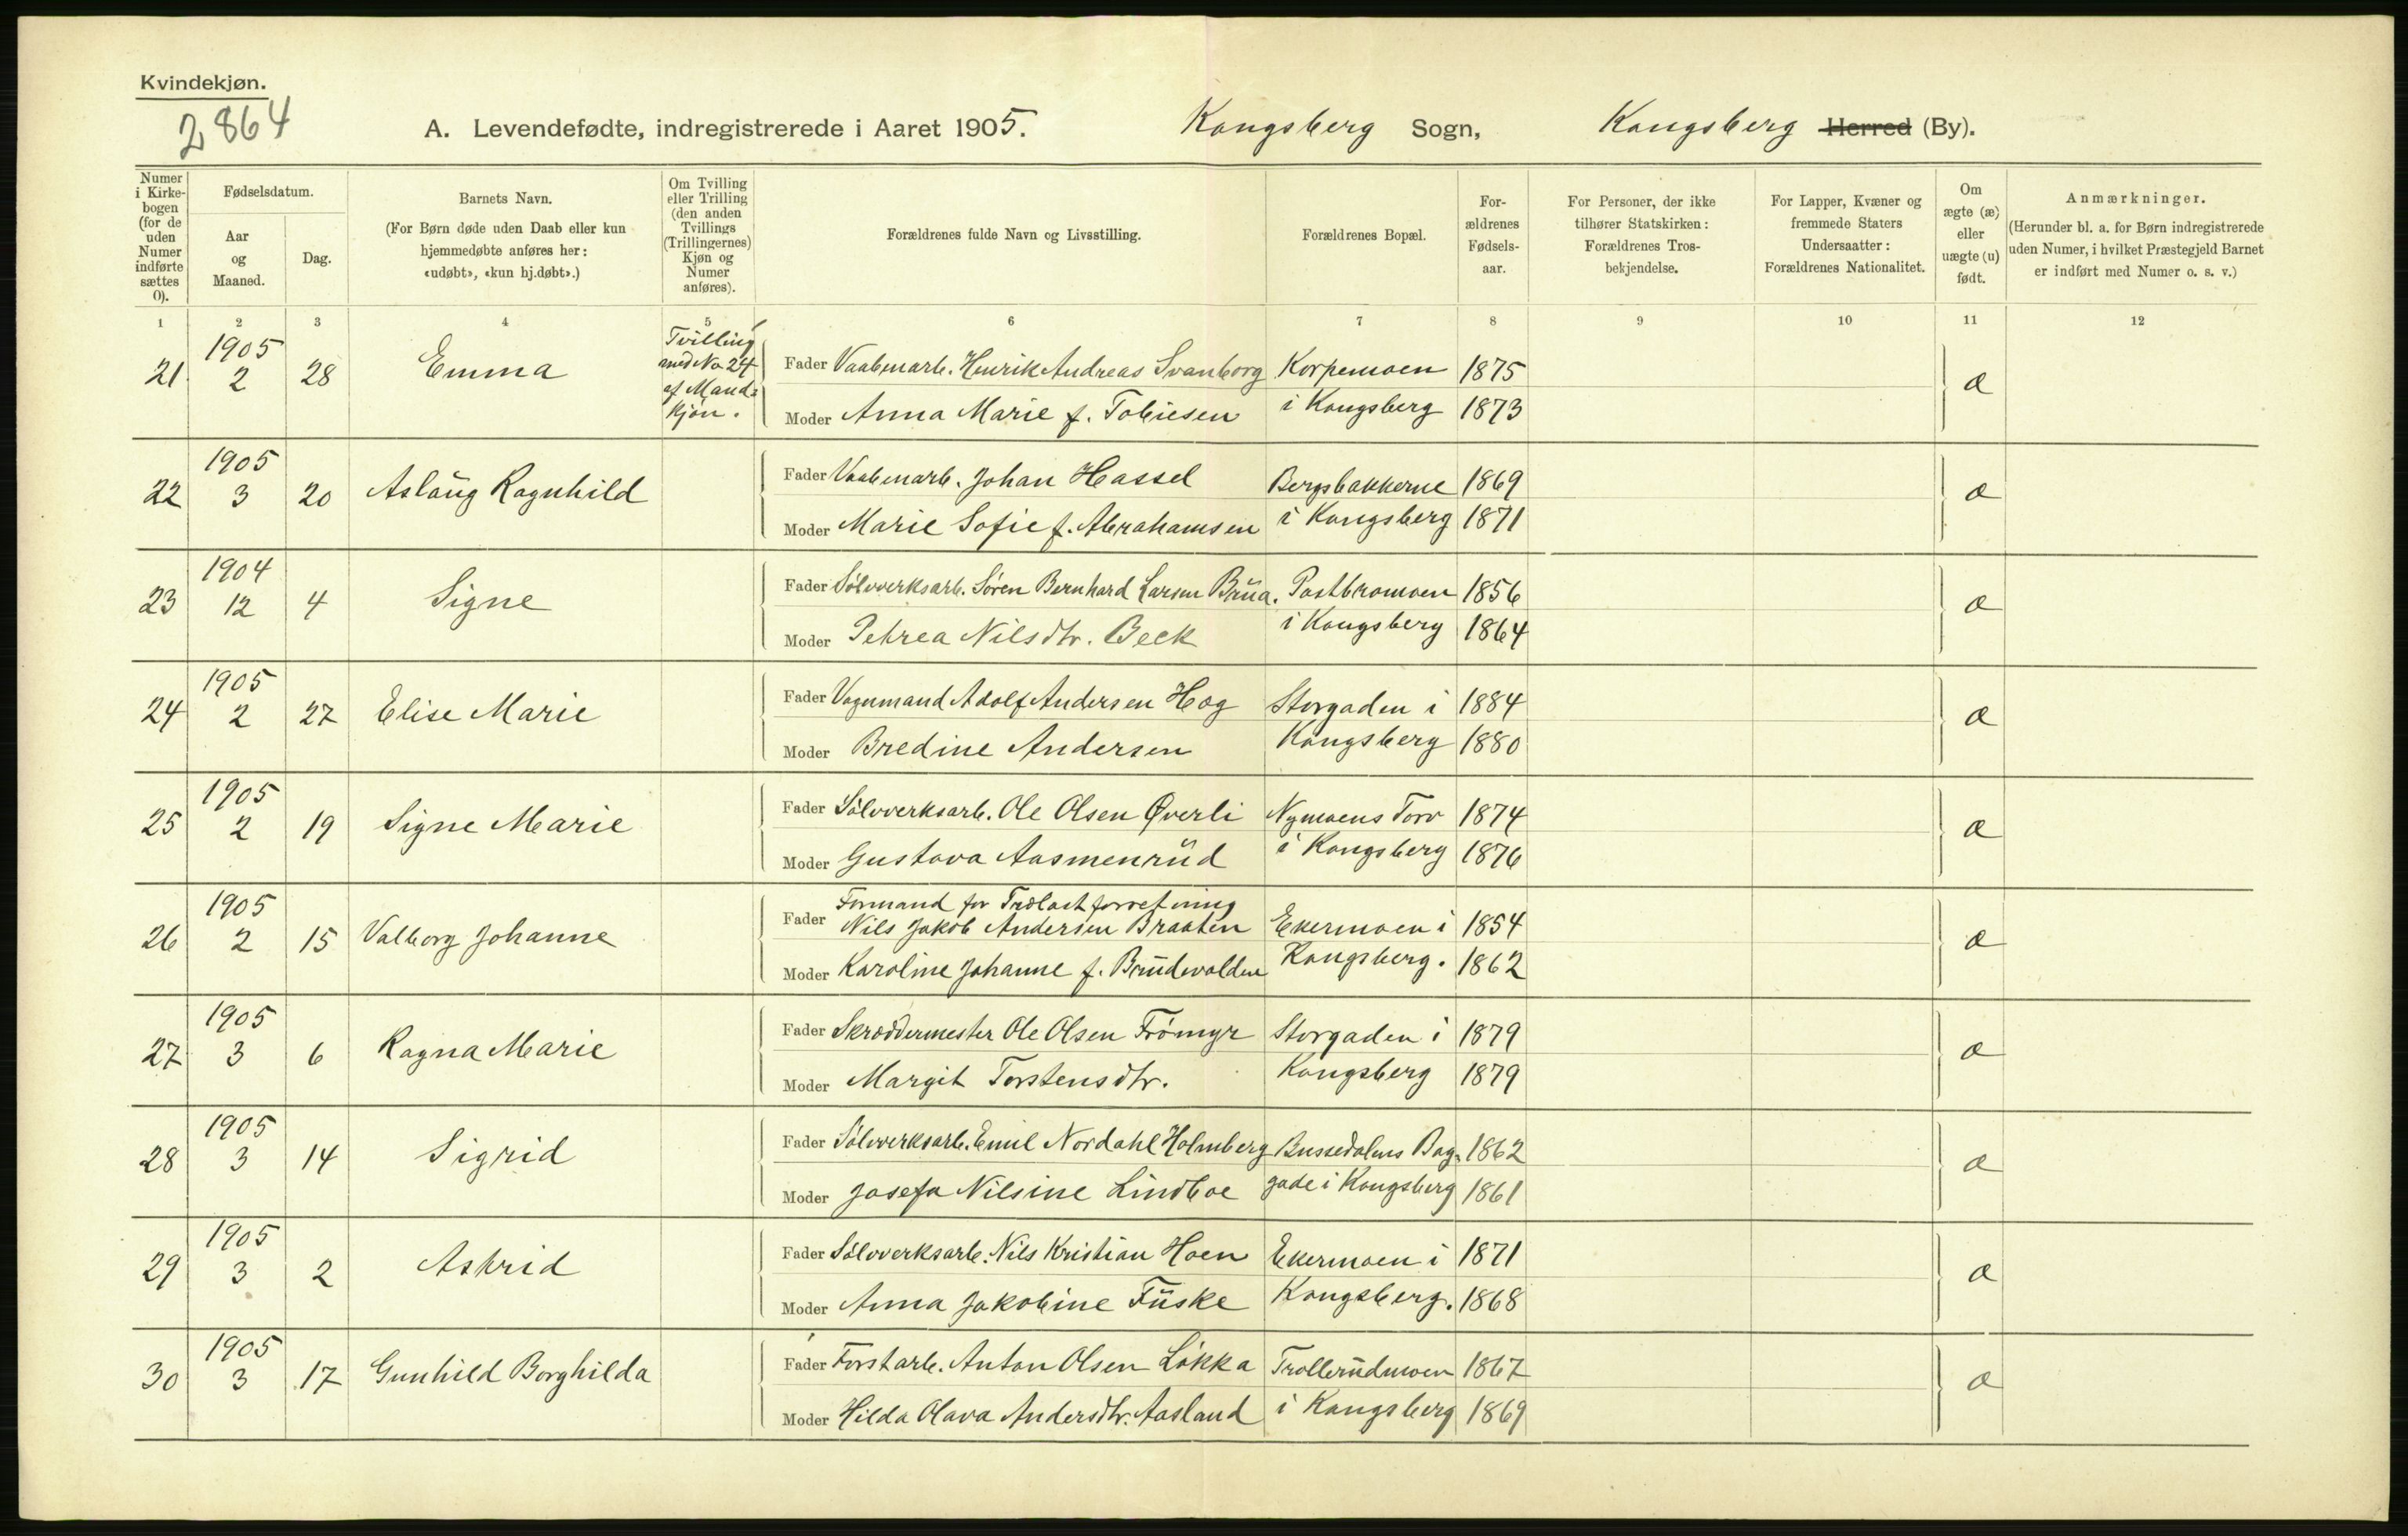 Kvindekjøn.
2864
A. Levendefødte, indregistrerede i Aaret 1905. Kongsberg Sogn, Kongsberg Herred (By).
Numer i Kirkebogen (for de uden Numer indførte sættes 0).
Fødselsdatum.
Aar og Maaned.
Dag.
Barnets Navn.
(For Børn døde uden Daab eller kun hjemmedøbte anføres her: «udøbt», «kun hj.døbt».)
Om Tvilling eller Trilling (den anden Tvillings (Trillingernes) Kjøn og Numer anføres).
Forældrenes fulde Navn og Livsstilling.
Forældrenes Bopæl.
Forældrenes Fødselsaar.
For Personer, der ikke tilhører Statskirken: Forældrenes Trosbekjendelse.
For Lapper, Kvæner og fremmede Staters Undersaatter: Forældrenes Nationalitet.
Om ægte (æ) eller uægte (u) født.
Anmærkninger.
(Herunder bl. a. for Børn indregistrerede uden Numer, i hvilket Præstegjeld Barnet er indført med Numer o. s. v.)
1 2 3 4 5 6 7 8 9 10 11 12
21 1905 2 28 Emma Tvilling med No 24 af Mandkjøn. Fader Vaabenarb. Henrik Andreas Svanborg Korpemoen 1875 æ
Moder Anna Marie f. Tobiesen i Kongsberg 1873
22 1905 3 20 Aslaug Ragnhild Fader Vaabenarb. Johan Hassel Bergsbakkerne 1869 æ
Moder Marie Sofie f. Abrahamsen i Kongsberg 1871
23 1904 12 4 Signe Fader Sølvverksarb. Søren Bernhard Larsen Brua. Postbromoen 1856 æ
Moder Petrea Nilsdtr. Beck i Kongsberg 1864
24 1905 2 27 Elise Marie Fader Vognmand Adolf Andersen Hog Storgaden i 1884 æ
Moder Bredine Andersen Kongsberg 1880
25 1905 2 19 Signe Marie Fader Sølvverksarb. Ole Olsen Øverli Nymoens Torv 1874 æ
Moder Gustava Aasmenrud i Kongsberg 1876
26 1905 2 15 Valborg Johanne Fader Formand for Trælastforretning
Nils Jakob Andersen Braaten Ekermoen i 1854 æ
Moder Karoline Johanne f. Brudevolden Kongsberg. 1862
27 1905 3 6 Ragna Marie Fader Skræddermester Ole Olsen Frömyr Storgaden i 1879 æ
Moder Margit Torstensdtr. Kongsberg 1879
28 1905 3 14 Sigrid Fader Sølvverksarb. Emil Nordahl Holmberg Bussedalens Bag- 1862 æ
Moder Josefa Nilsine Lindboe gade i Kongsberg 1861
29 1905 3 2 Astrid Fader Sølvverksarb. Nils Kristian Hoen Ekermoen i 1871 æ
Moder Anna Jakobine Fuske Kongsberg. 1868
30 1905 3 17 Gunhild Borghilda Fader Forstarb. Anton Olsen Løkka Trollerudmoen 1867 æ
Moder Hilda Olava Andersdtr. Aasland i Kongsberg 1869